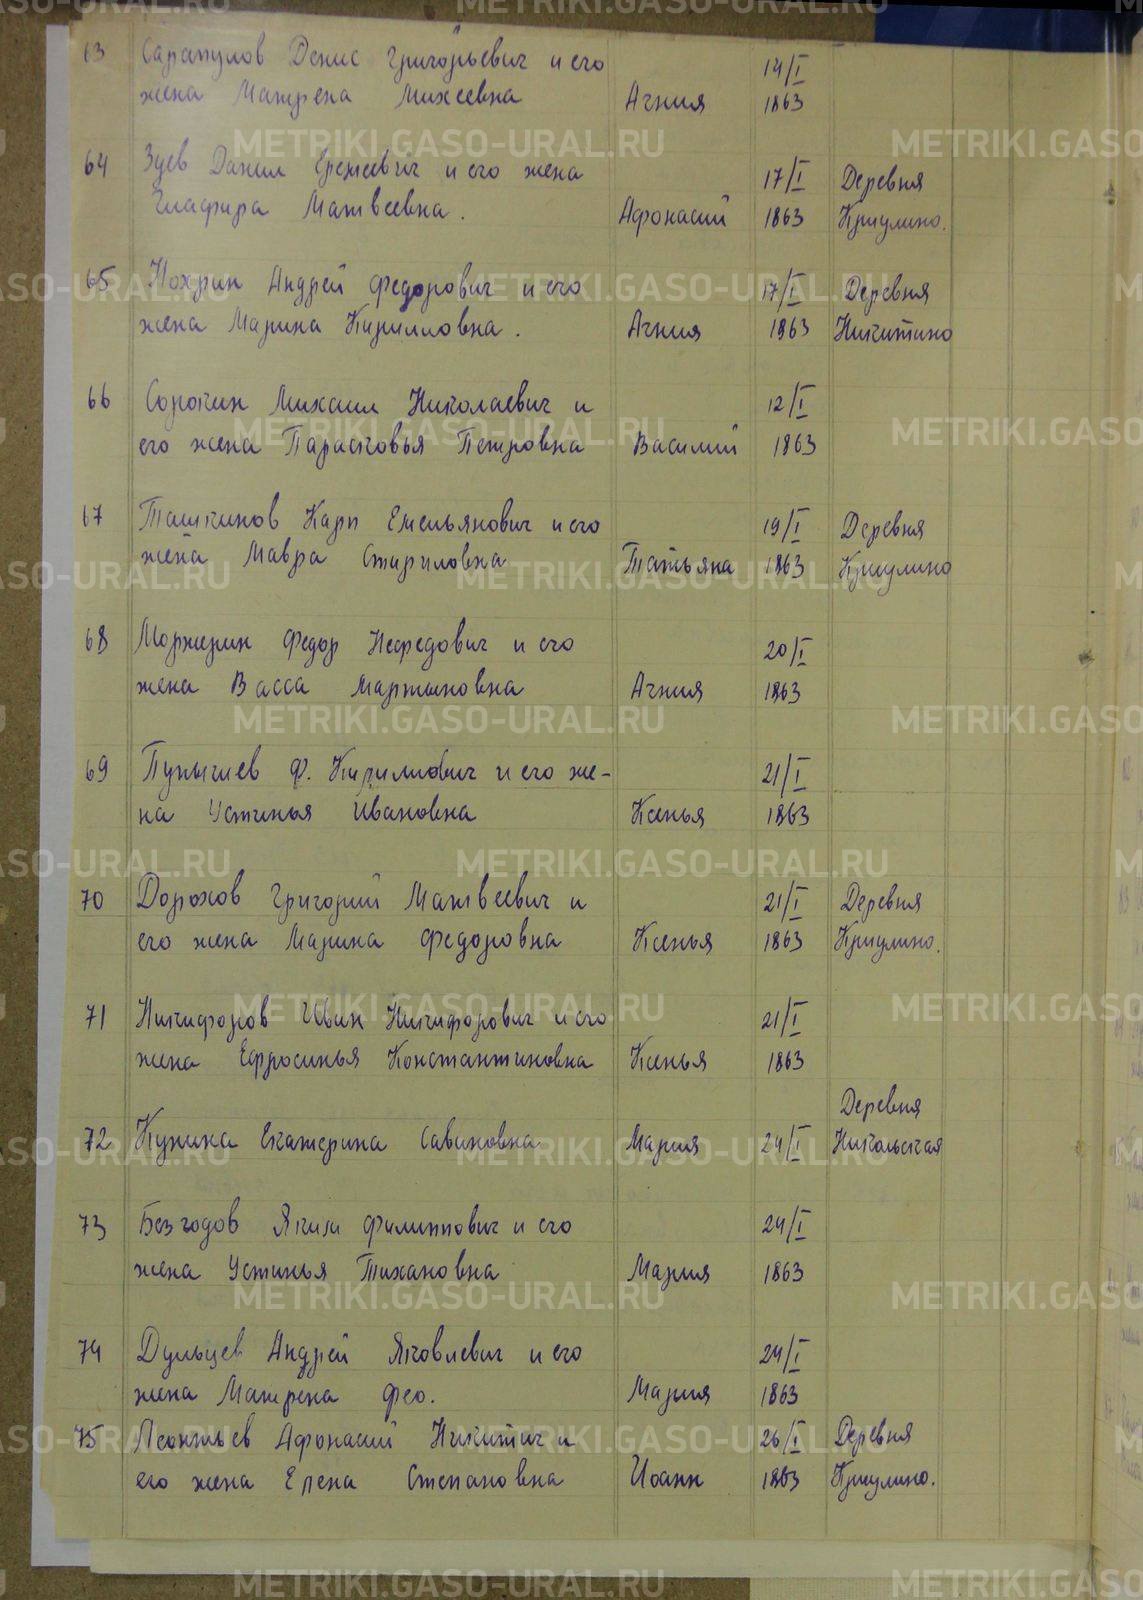 63 Сарапулов Денис Григорьевич и его 14/I
жена Матрена Михеевна Агния 1863
64 Зуев Данил Еремеевич и его жена 17/I Деревня
Глафира Матвеевна. Афонасий 1863 Криулино.
65 Похрин Андрей Федорович и его 17/I Деревня
жена Марина Кирилловна. Агния 1863 Никитино
66 Сорокин Михаил Николаевич и 12/I
его жена Парасковья Петровна Василий 1863
67 Ташкинов Карп Емельянович и его 19/I Деревня
жена Мавра Спириловна Татьяна 1863 Криулино
68 Моржерин Федор Нефедович и его 20/I
жена Васса Мартыновна Агния 1863
69 Пупышев Ф. Кирилович и его же- 21/I
на Устинья Ивановна Ксенья 1863
70 Дорохов Григорий Матвеевич и 21/I Деревня
его жена Марина Федоровна Ксенья 1863 Криулино.
71 Никифоров Иван Никифорович и его 21/I
жена Ефросинья Константиновна Ксенья 1863
Деревня
72 Кунина Екатерина Савиновна Мария 24/I Никольская
73 Безгодов Яким Филиппович и его 24/I
жена Устинья Тихановна Мария 1863
74 Дульцев Андрей Яковлевич и его 24/I
жена Матрена Фео. Мария 1863
75 Леонтьев Афонасий Никитич и 26/I Деревня
его жена Елена Степановна Иоанн 1863 Криулино.
METRIKI.GASO-URAL.RU